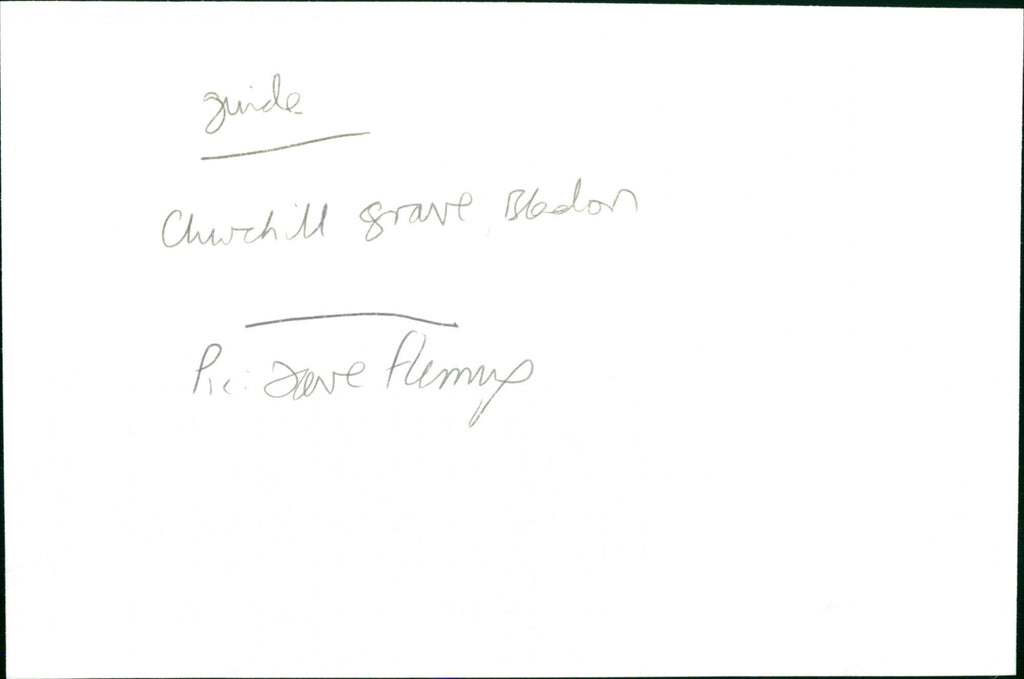 guide
Churchill grave, Bladon
Pic: Dave Fleming